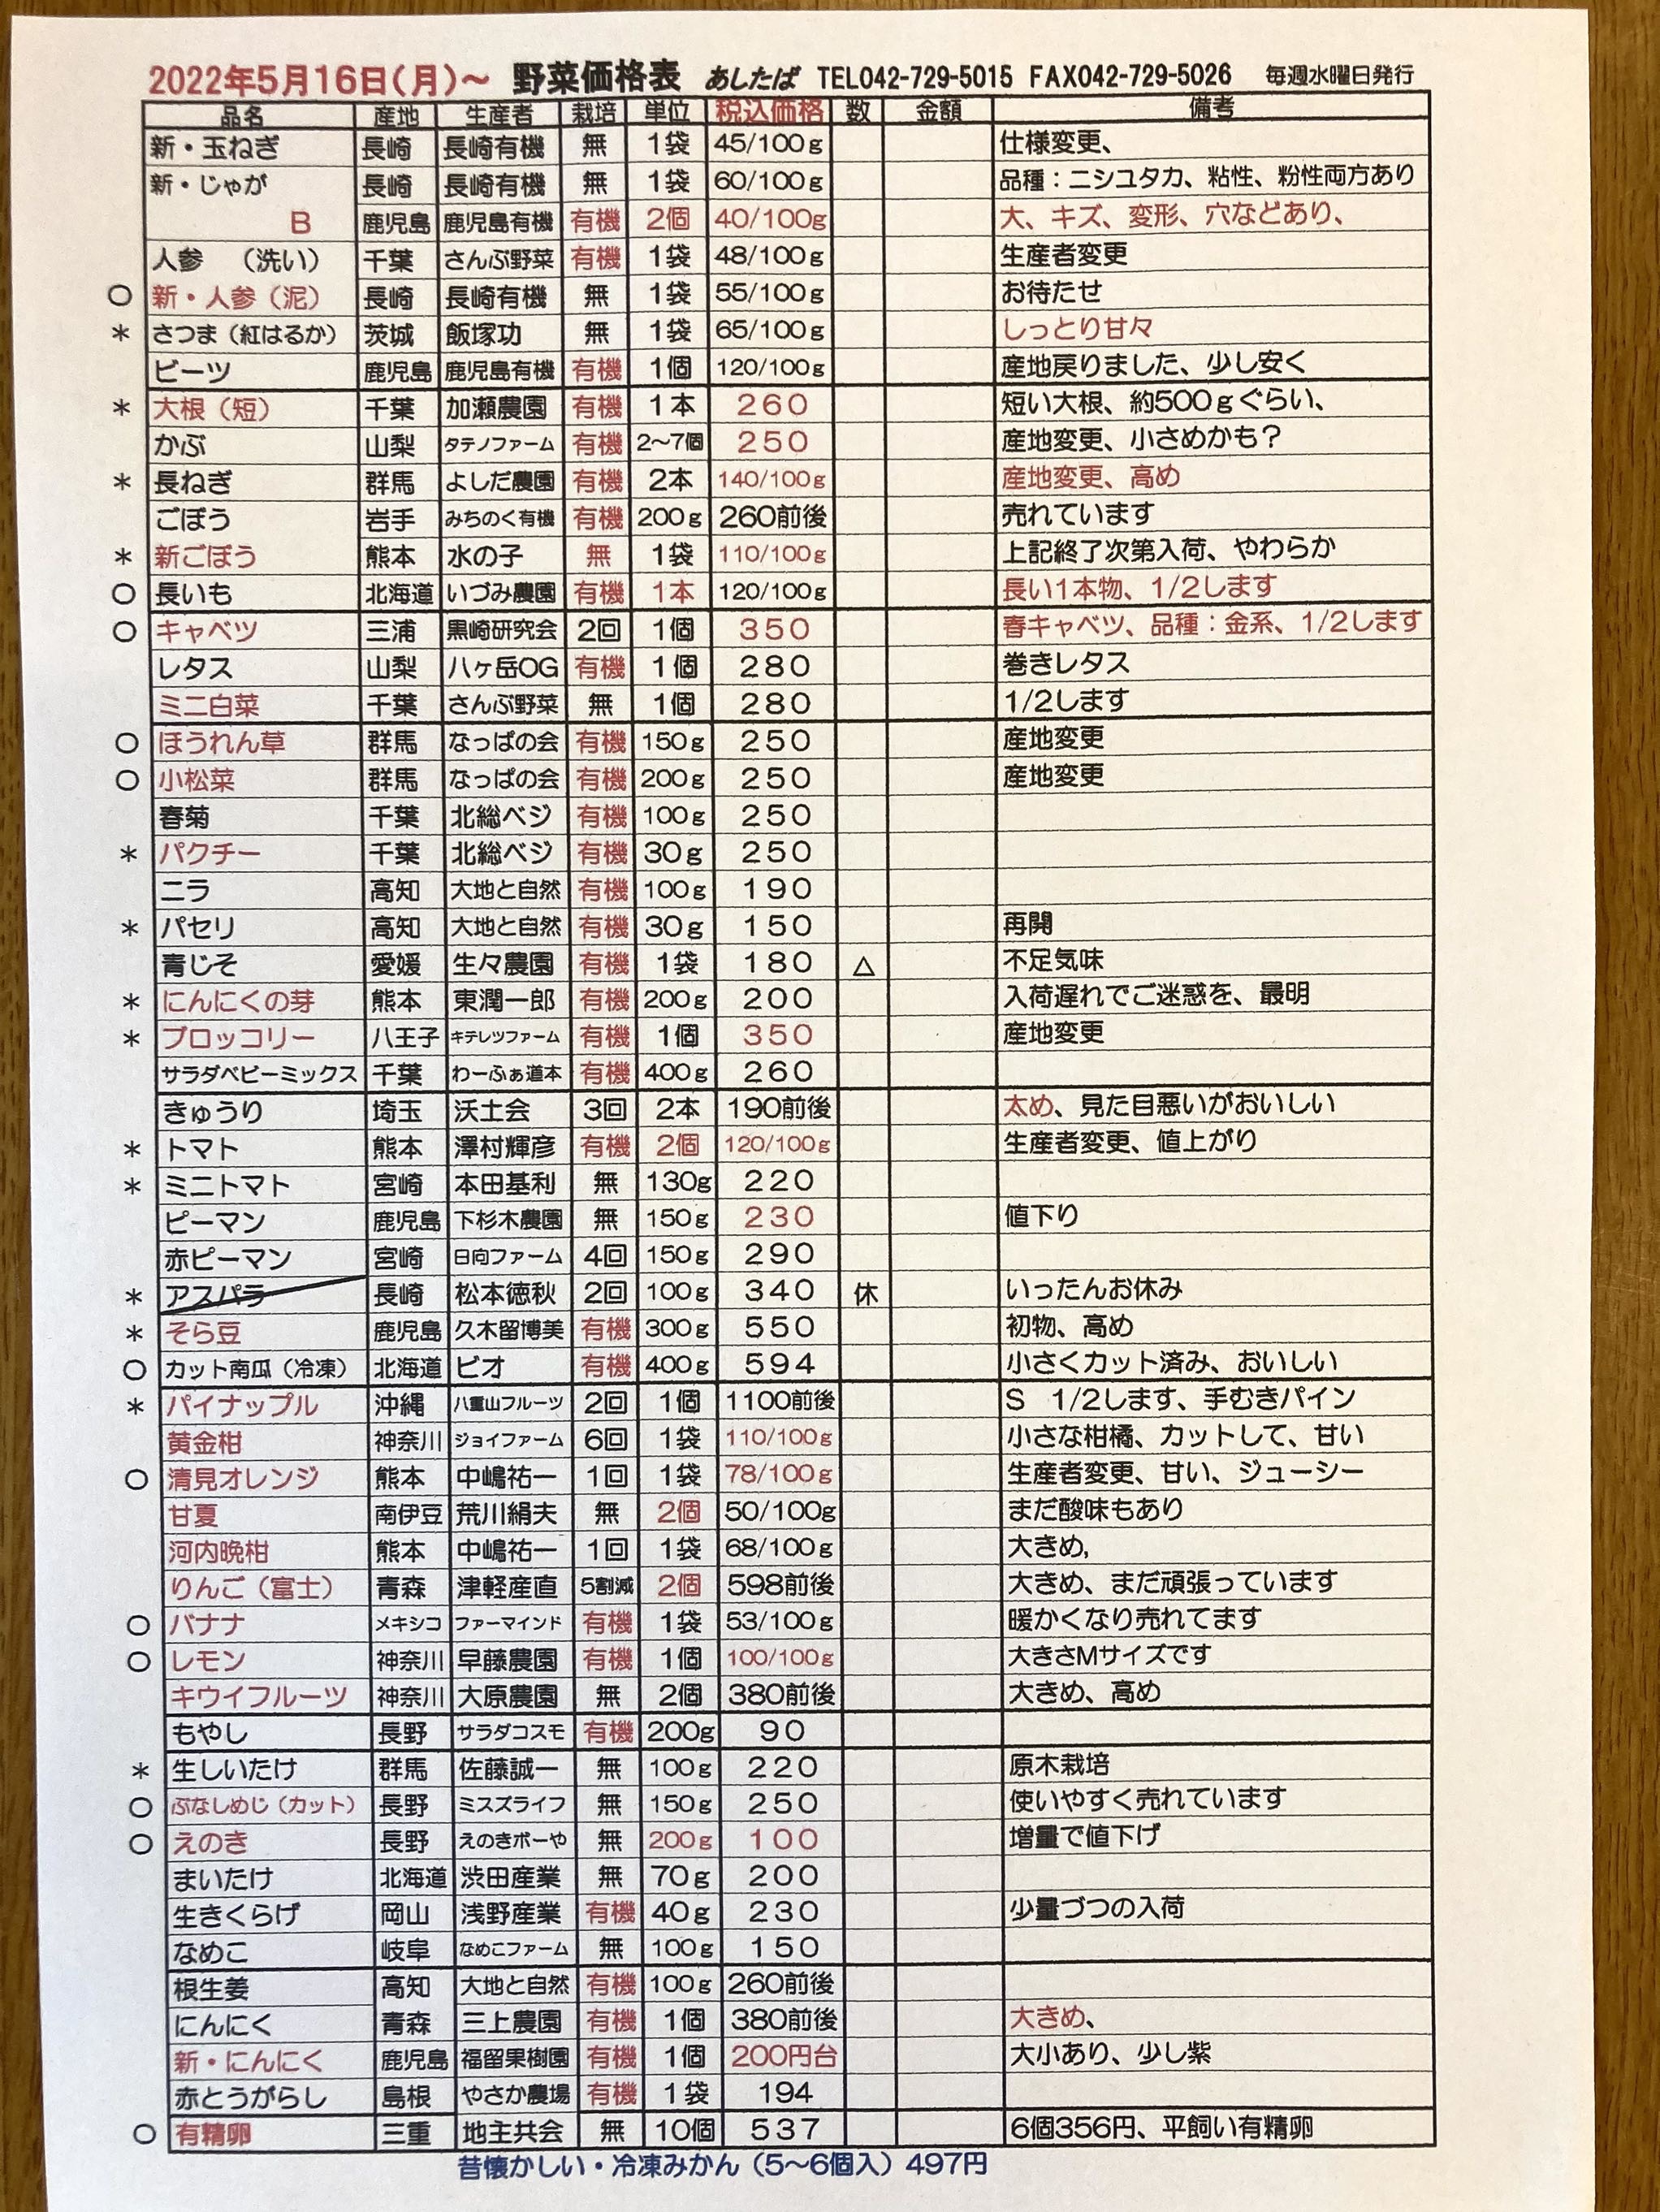 2022年5月16日(月)～ 野菜価格表 あしたば TEL042-729-5015 FAX042-729-5026 毎週水曜日発行
品名 産地 生産者 栽培 単位 税込価格 数 金額 備考
新・玉ねぎ 長崎 長崎有機 無 1袋 45/100g 仕様変更、
新・じゃが 長崎 長崎有機 無 1袋 60/100g 品種：ニシユタカ、粘性、粉性両方あり
B 鹿児島 鹿児島有機 有機 2個 40/100g 大、キズ、変形、穴などあり、
人参 （洗い） 千葉 さんぶ野菜 有機 1袋 48/100g 生産者変更
○ 新・人参（泥） 長崎 長崎有機 無 1袋 55/100g お待たせ
* さつま（紅はるか） 茨城 飯塚功 無 1袋 65/100g しっとり甘々
ビーツ 鹿児島 鹿児島有機 有機 1個 120/100g 産地戻りました、少し安く
* 大根（短） 千葉 加瀬農園 有機 1本 260 短い大根、約500gぐらい、
かぶ 山梨 タテノファーム 有機 2～7個 250 産地変更、小さめかも？
* 長ねぎ 群馬 よしだ農園 有機 2本 140/100g 産地変更、高め
ごぼう 岩手 みちのく有機 有機 200g 260前後 売れています
* 新ごぼう 熊本 水の子 無 1袋 110/100g 上記終了次第入荷、やわらか
○ 長いも 北海道 いづみ農園 有機 1本 120/100g 長い1本物、1/2します
○ キャベツ 三浦 黒崎研究会 2回 1個 350 春キャベツ、品種：金系、1/2します
レタス 山梨 八ヶ岳OG 有機 1個 280 巻きレタス
ミニ白菜 千葉 さんぶ野菜 無 1個 280 1/2します
○ ほうれん草 群馬 なっぱの会 有機 150g 250 産地変更
○ 小松菜 群馬 なっぱの会 有機 200g 250 産地変更
春菊 千葉 北総ベジ 有機 100g 250
* パクチー 千葉 北総ベジ 有機 30g 250
ニラ 高知 大地と自然 有機 100g 190
* パセリ 高知 大地と自然 有機 30g 150 再開
青じそ 愛媛 生々農園 有機 1袋 180 △ 不足気味
* にんにくの芽 熊本 東潤一郎 有機 200g 200 入荷遅れでご迷惑を、最明
* ブロッコリー 八王子 キテレツファーム 有機 1個 350 産地変更
サラダベビーミックス 千葉 わーふぁ道本 有機 400g 260
きゅうり 埼玉 沃土会 3回 2本 190前後 太め、見た目悪いがおいしい
* トマト 熊本 澤村輝彦 有機 2個 120/100g 生産者変更、値上がり
* ミニトマト 宮崎 本田基利 無 130g 220
ピーマン 鹿児島 下杉木農園 無 150g 230 値下り
赤ピーマン 宮崎 日向ファーム 4回 150g 290
* アスパラ 長崎 松本徳秋 2回 100g 340 休 いったんお休み
* そら豆 鹿児島 久木留博美 有機 300g 550 初物、高め
○ カット南瓜（冷凍） 北海道 ビオ 有機 400g 594 小さくカット済み、おいしい
* パイナップル 沖縄 八重山フルーツ 2回 1個 1100前後 S 1/2します、手むきパイン
黄金柑 神奈川 ジョイファーム 6回 1袋 110/100g 小さな柑橘、カットして、甘い
○ 清見オレンジ 熊本 中嶋祐一 1回 1袋 78/100g 生産者変更、甘い、ジューシー
甘夏 南伊豆 荒川絹夫 無 2個 50/100g まだ酸味もあり
河内晩柑 熊本 中嶋祐一 1回 1袋 68/100g 大きめ,
りんご（富士） 青森 津軽産直 5割減 2個 598前後 大きめ、まだ頑張っています
○ バナナ メキシコ ファーマインド 有機 1袋 53/100g 暖かくなり売れてます
○ レモン 神奈川 早藤農園 有機 1個 100/100g 大きさMサイズです
キウイフルーツ 神奈川 大原農園 無 2個 380前後 大きめ、高め
もやし 長野 サラダコスモ 有機 200g 90
* 生しいたけ 群馬 佐藤誠一 無 100g 220 原木栽培
○ ぶなしめじ（カット） 長野 ミスズライフ 無 150g 250 使いやすく売れています
○ えのき 長野 えのきボーや 無 200g 100 増量で値下げ
まいたけ 北海道 渋田産業 無 70g 200
生きくらげ 岡山 浅野産業 有機 40g 230 少量づつの入荷
なめこ 岐阜 なめこファーム 無 100g 150
根生姜 高知 大地と自然 有機 100g 260前後
にんにく 青森 三上農園 有機 1個 380前後 大きめ、
新・にんにく 鹿児島 福留果樹園 有機 1個 200円台 大小あり、少し紫
赤とうがらし 島根 やさか農場 有機 1袋 194
○ 有精卵 三重 地主共会 無 10個 537 6個356円、平飼い有精卵
昔懐かしい・冷凍みかん（5～6個入）497円